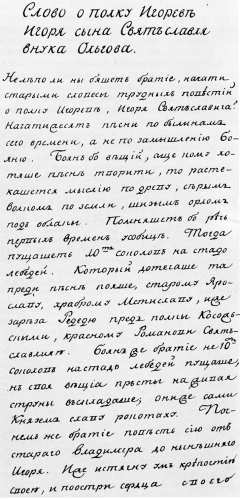 Слово о полку Игоревѣ
Игоря сына Святъславля
внука Ольгова.
Нелѣполи ны бяшетъ братiе, начати
старыми словесы трудныхъ повѣстiй
о полку Игоревѣ, Игоря Святъславича?
Начатижеся пѣсни по былинамъ
сего времени, а не по замышленiю Бо-
яню. Боянъ бо вѣщiй, аще кому хо-
тяше пѣснь творити, то расте-
кашется мыслiю по древу, сѣрымъ
волкомъ по земли, шизымъ орломъ
подъ облакы. Помняшетъ бо рѣчь
первыхъ временъ усобицѣ. Тогда
пущашетъ 10ть соколовъ на стадо
лебедей. Который дотечаше та
преди пѣснь пояше, старому Яро-
славу, храброму Мстиславу, иже
зарѣза Редедю предъ полкы Касожь-
скыми, красному Романови Святъ-
славличю. Боянъ же братiе не 10ть
соколовъ на стадо лебедей пущаше,
нъ своя вѣщiа пръсты на живая
струны въскладаше; они же сами
Княземъ славу рокотаху. Поч-
немъ же братiе повѣсть сiю отъ
стараго Владимiра до нынѣшняго
Игоря. Иже истягну умъ крѣпостiю
своею, и поостри сердца своего